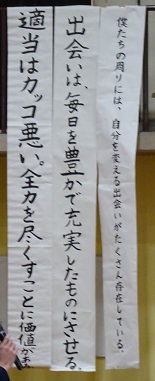 僕たちの周りには、自分を変える出会いがたくさん存在している。
出会いは、毎日を豊かで充実したものにさせる。
適当はカッコ悪い。全力を尽くすことに価値が